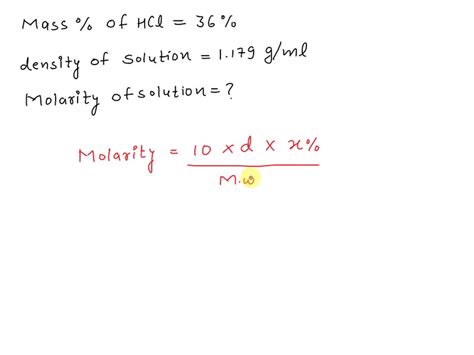 Mass % of HCl = 36%
density of solution = 1.179 g/ml
Molarity of solution = ?
Molarity = 10 x d x x%
M.w